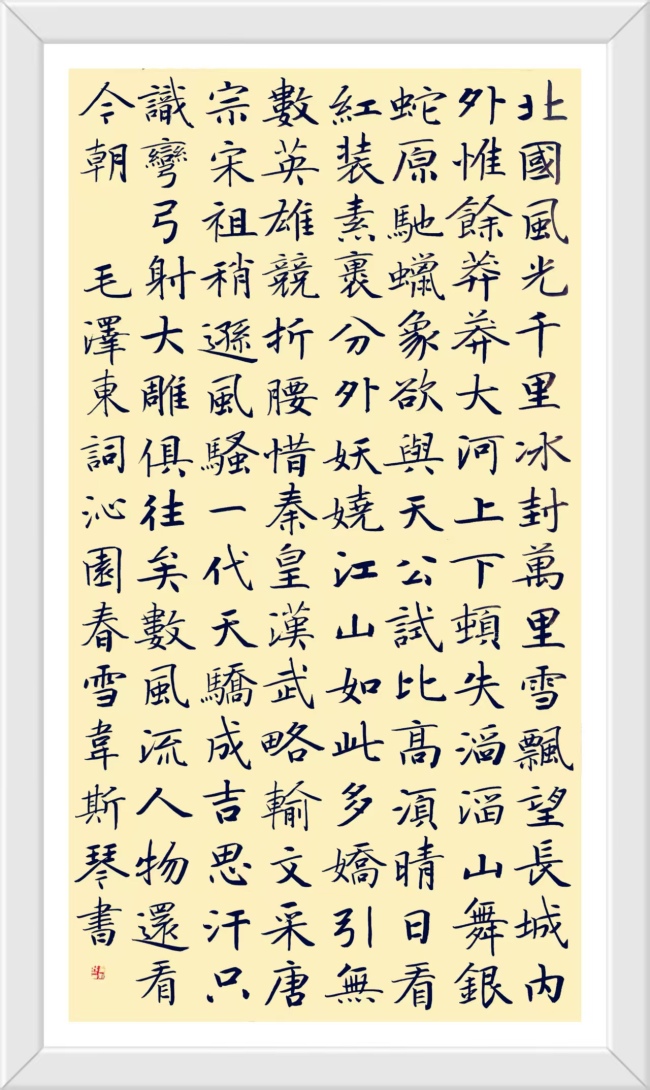 北國風光千里冰封萬里雪飄望長城内
外惟餘莽莽大河上下頓失滔滔山舞銀
蛇原馳蠟象欲與天公試比高湏晴日看
紅装素裹分外妖嬈江山如此多嬌引無
數英雄競折腰惜秦皇漢武略輸文采唐
宗宋祖稍遜風騷一代天驕成吉思汗只
識彎弓射大雕俱往矣數風流人物還看
今朝 毛澤東詞沁園春雪韋斯琴書